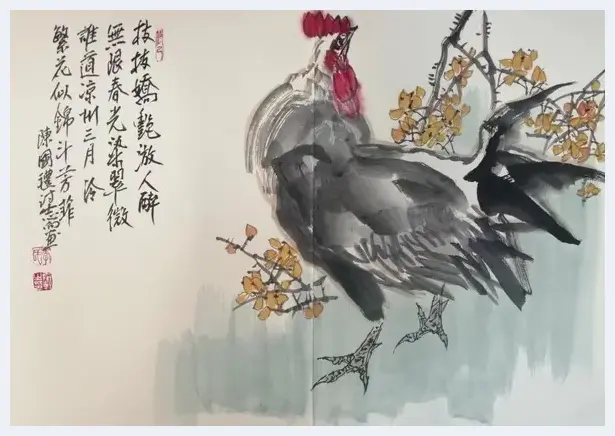 枝枝嬌艷激人醉
無限春光染翠微
誰道凉州三月冷
繁花似錦斗芳菲
陳國璞詩 寫